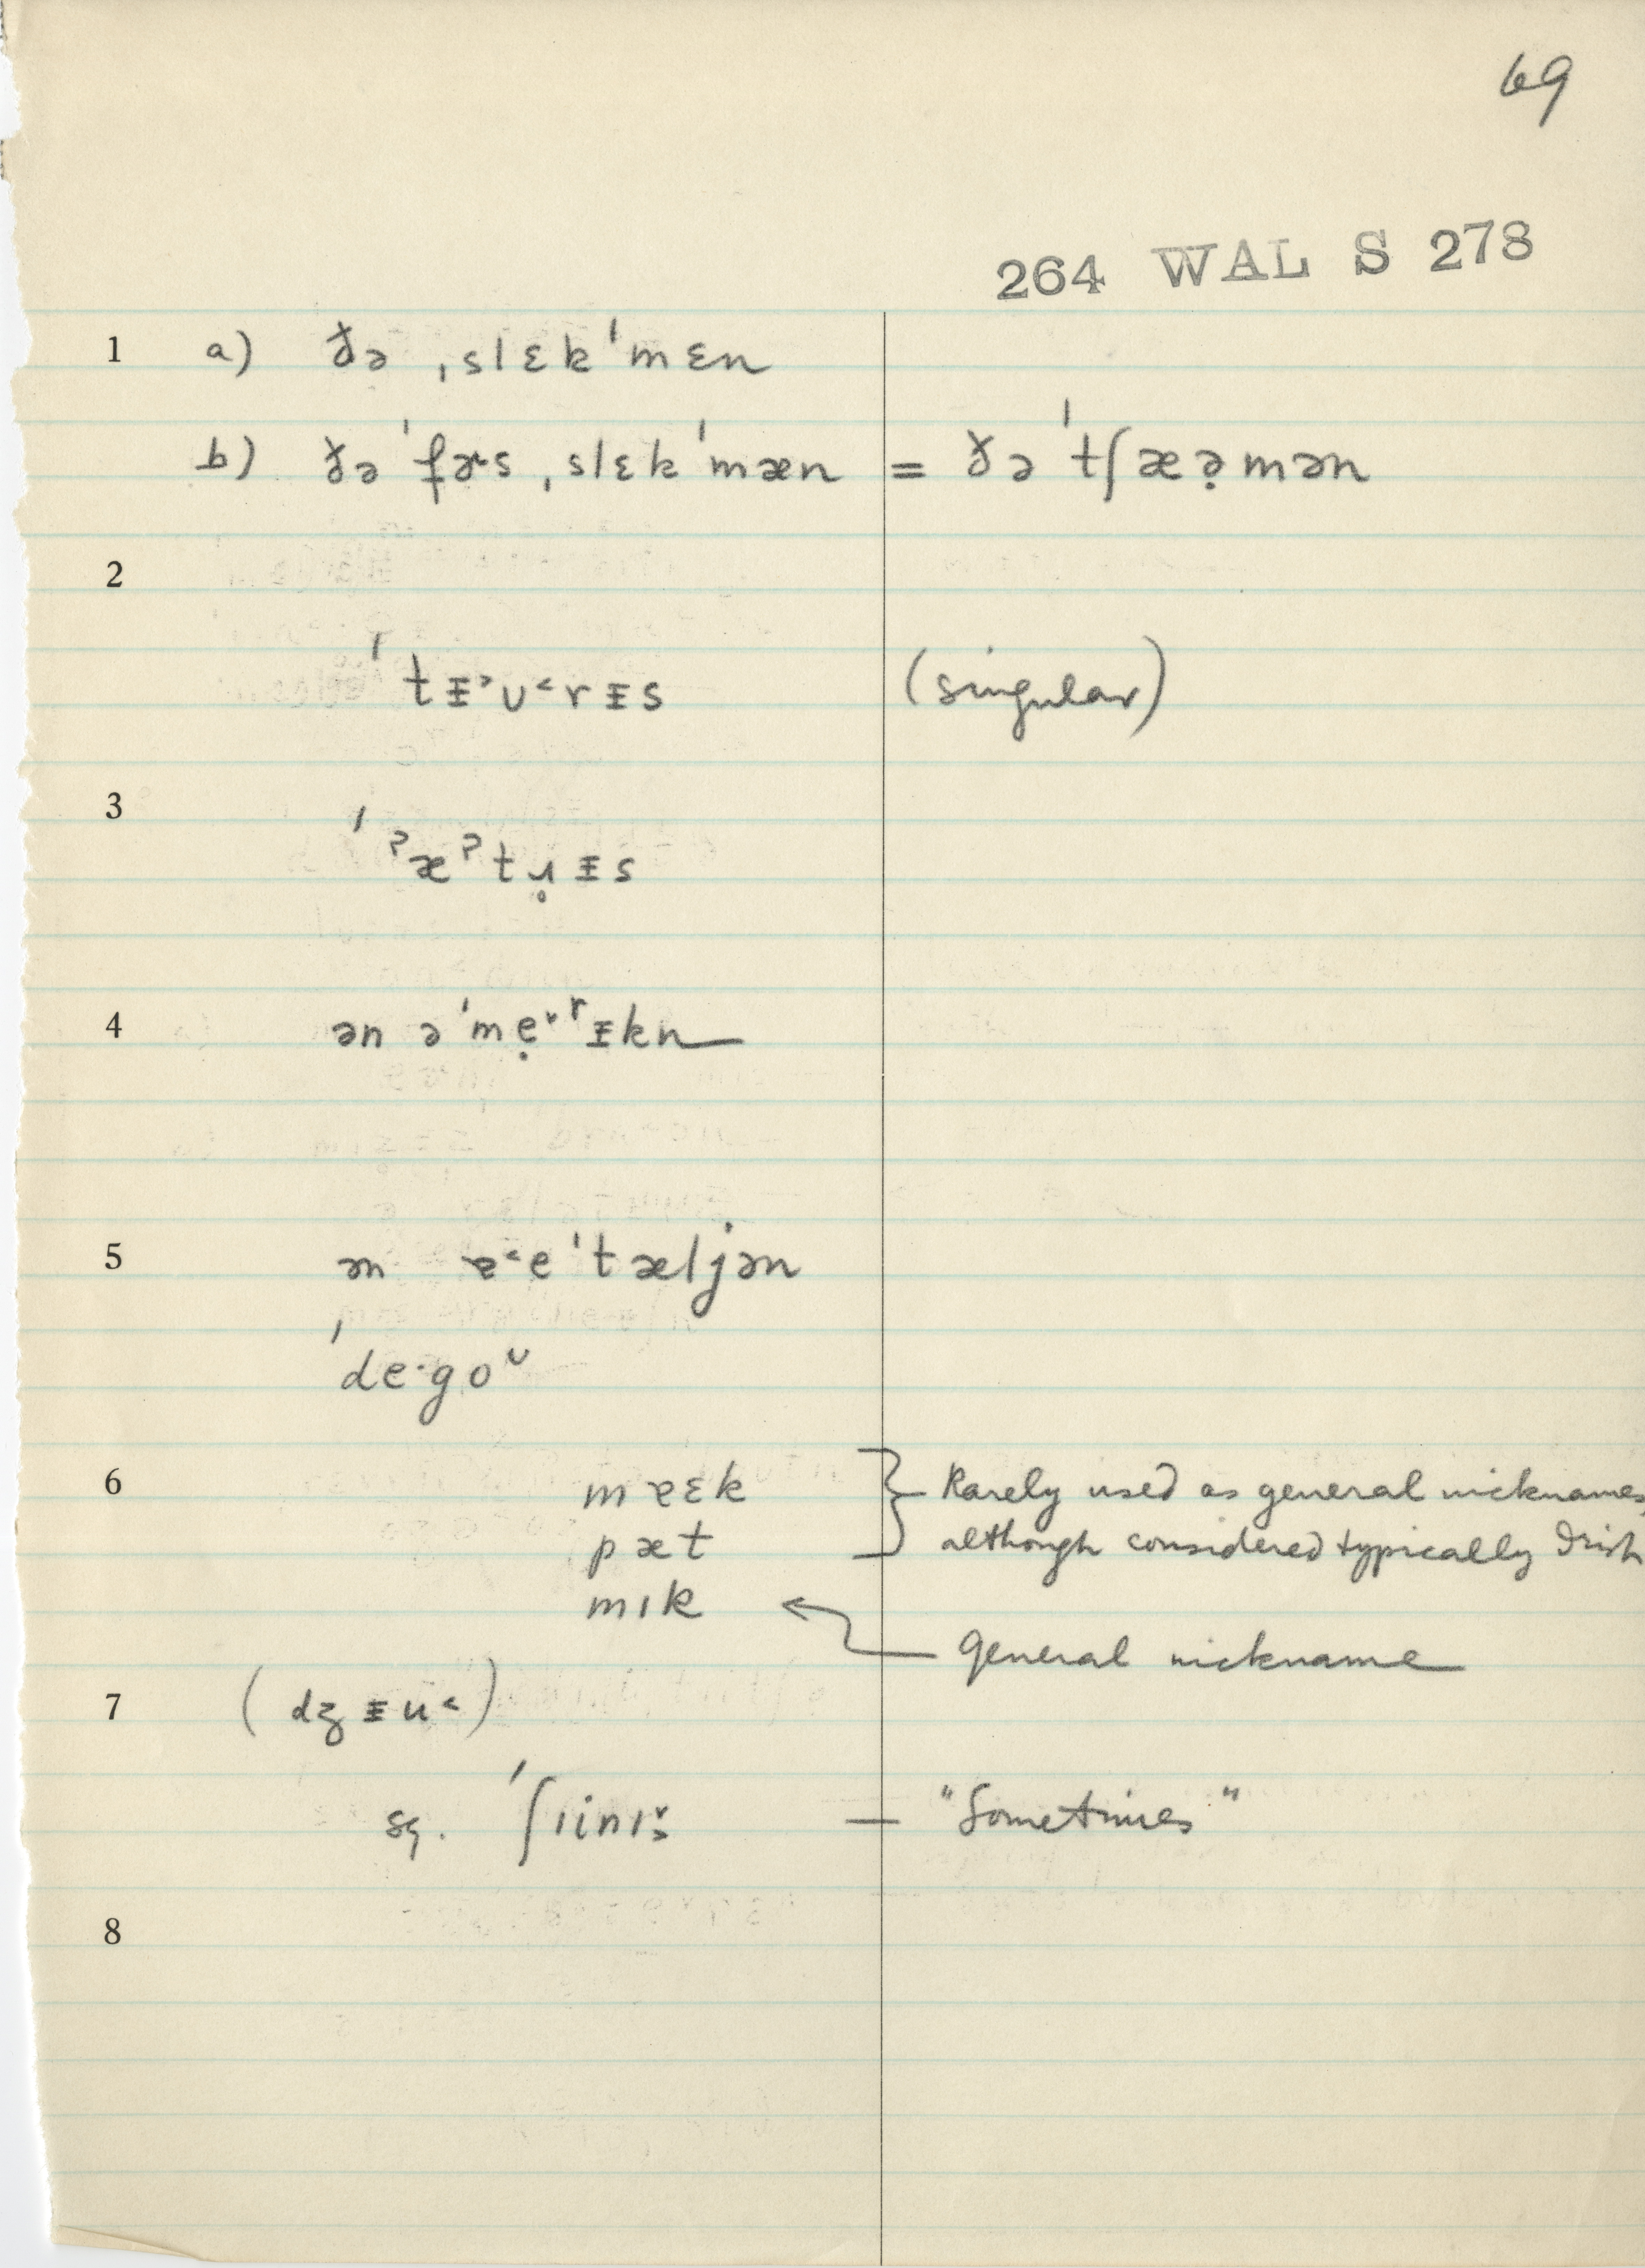 69
264 WAL S 278
1 a) ðə ˌslɛkˈmɛn
b) ðə ˈfɚs ˌslɛkˈmæn = ðə ˈtʃæə̣mən
2
ˈtᵻ˃ʊ˂rᵻs (singular)
3
ˈˀæˀtɹ̥ᵻs
4 ən əˈmẹ˅ʳᵻkn
5 ən ɐ˂eˈtæljən
ˈde·goᵘ
6 mɐɛk } Rarely used as general nicknames,
pæt although considered typically Irish
mɪk ←
general nickname
7 (dʒᵻu˂)
sg. ˈʃɪinɪs̬ — "Sometimes"
8